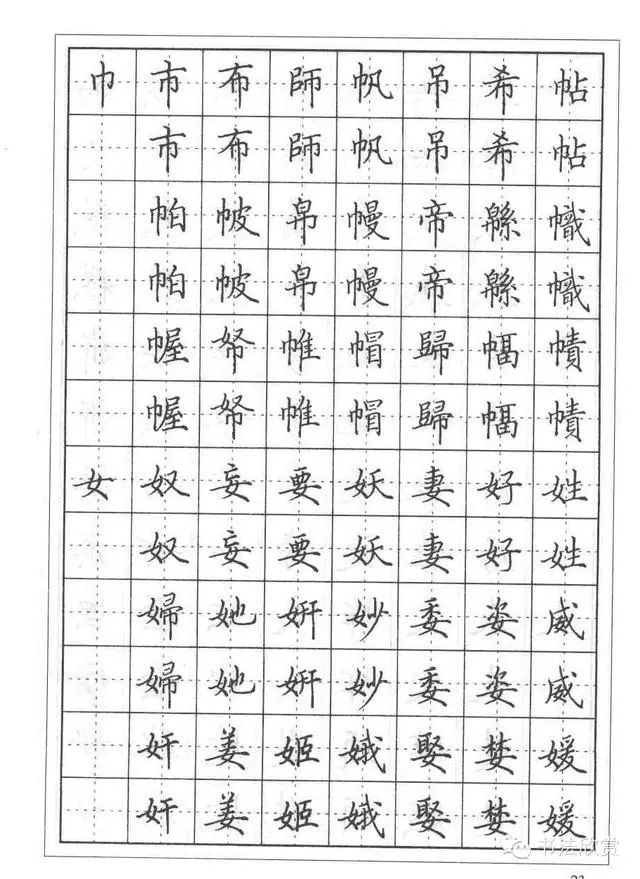 巾 市 布 師 帆 吊 希 帖
市 布 師 帆 吊 希 帖
帕 帔 帛 幔 帝 緜 幟
帕 帔 帛 幔 帝 緜 幟
幄 帑 帷 帽 歸 幅 幘
幄 帑 帷 帽 歸 幅 幘
女 奴 妄 要 妖 妻 好 姓
奴 妄 要 妖 妻 好 姓
婦 她 姸 妙 委 姿 威
婦 她 姸 妙 委 姿 威
奸 姜 姬 娥 娶 婪 媛
奸 姜 姬 娥 娶 婪 媛
书法欣赏